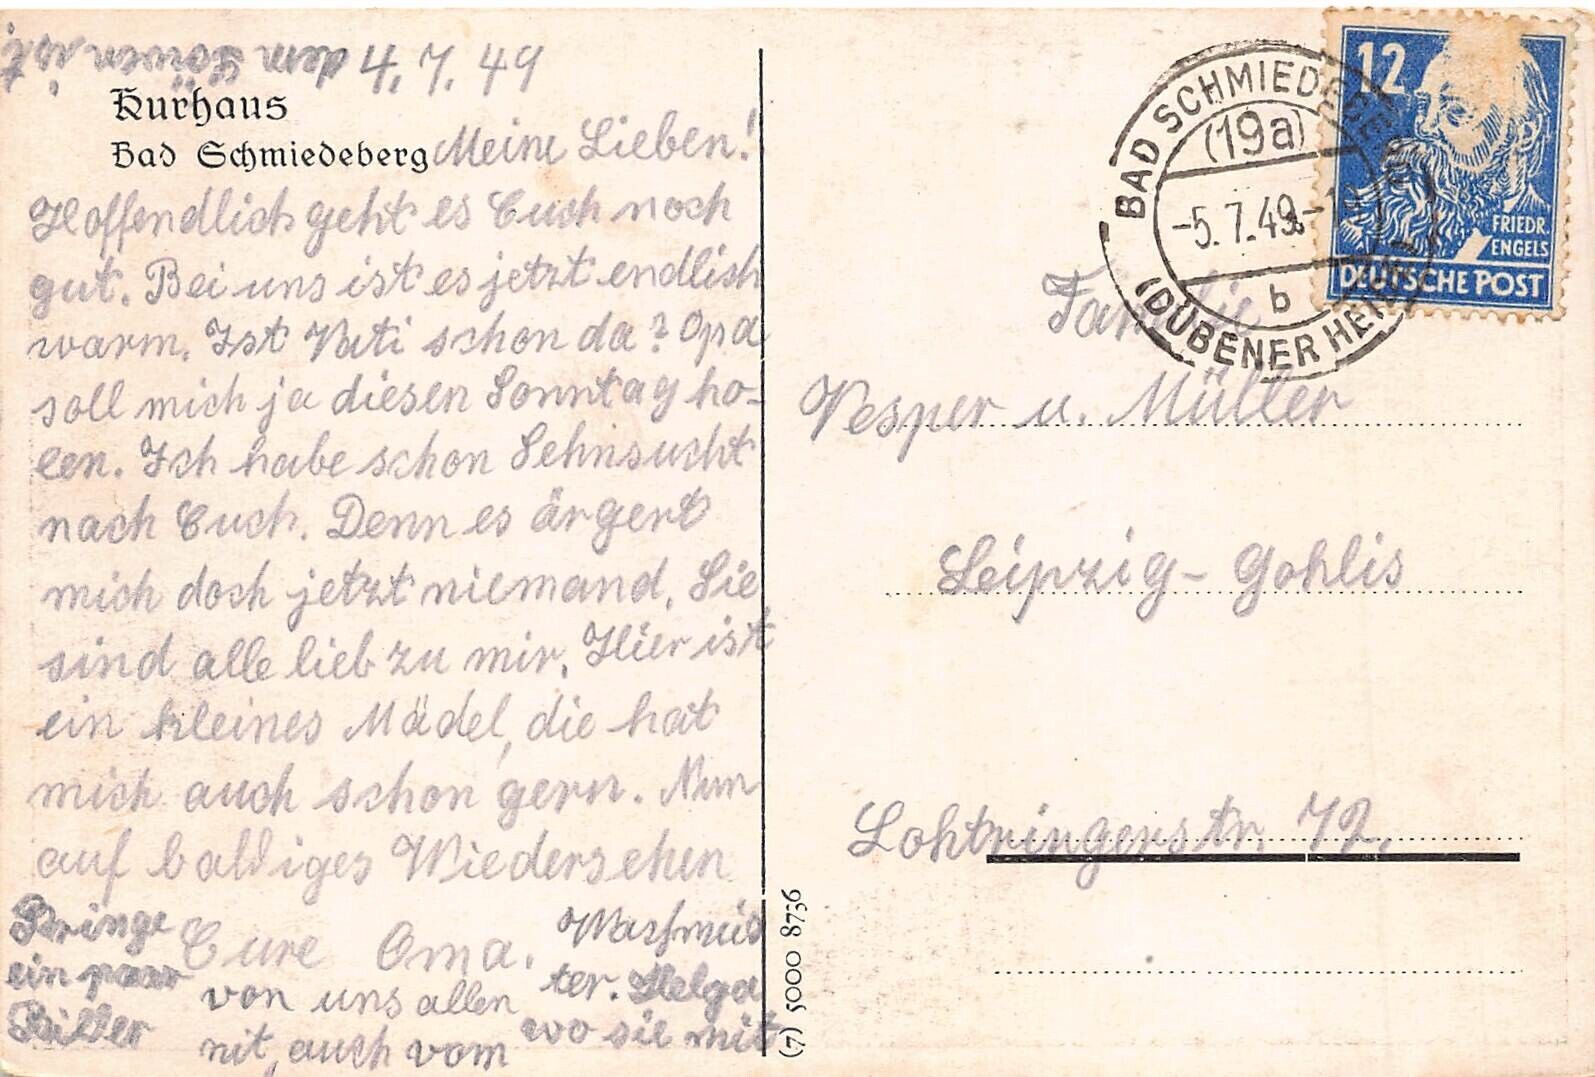 4. 7. 49
Kurhaus
Bad Schmiedeberg
Meine Lieben!
Hoffendlich geht es Euch noch
gut. Bei uns ist es jetzt endlich
warm. Ist Vati schon da? Opa
soll mich ja diesen Sonntag ho-
len. Ich habe schon Sehnsucht
nach Euch. Denn es ärgert
mich doch jetzt niemand. Sie
sind alle lieb zu mir. Hier ist
ein kleines Mädel, die hat
mich auch schon gern. Nun
auf baldiges Wiedersehen
Eure Oma.
Bringe
ein paar
Bilder
von uns allen
mit, auch vom
ter. Helga
wo sie mit
(7) 5000 8736
BAD SCHMIEDEBERG
(19a)
-5.7.49
b
(DÜBENER HEIDE)
12
FRIEDR.
ENGELS
DEUTSCHE POST
Familie
Vesper u. Müller
Leipzig-Gohlis
Lohtringerstr. 72.